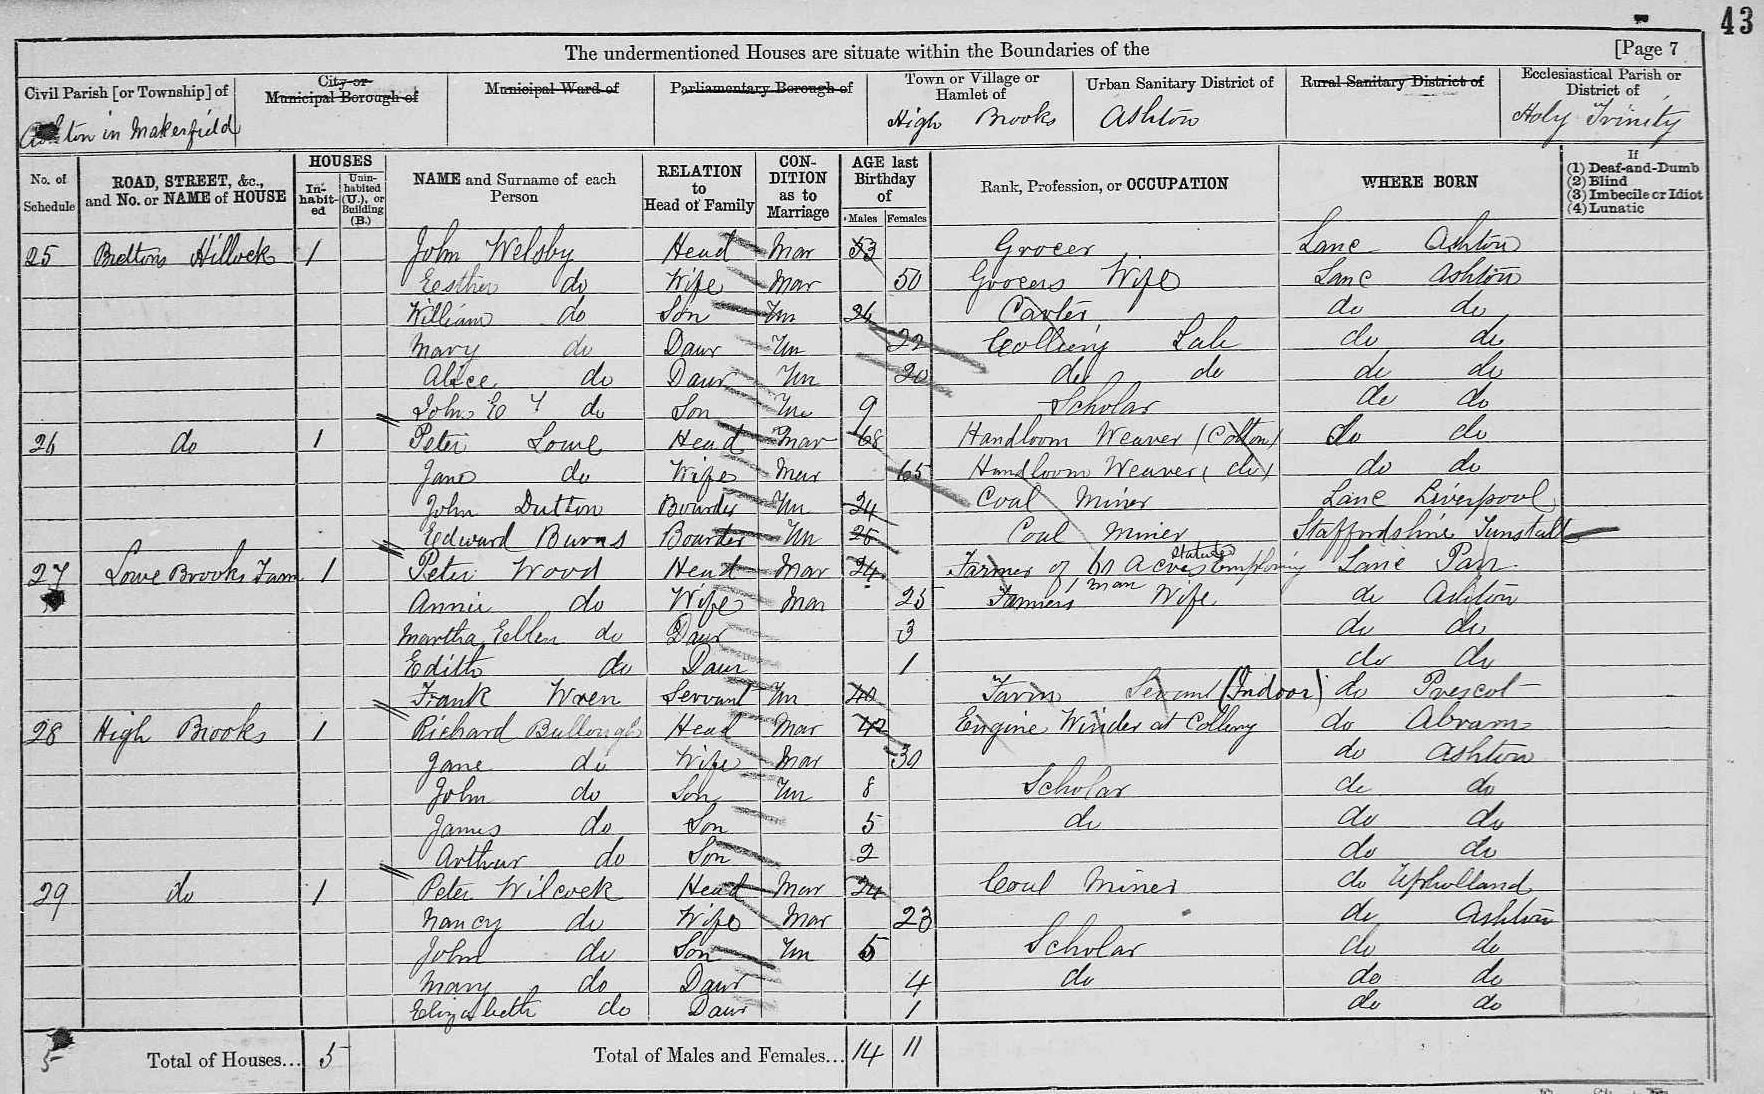 43
The undermentioned Houses are situate within the Boundaries of the [Page 7
Civil Parish [or Township] of
Ashton in Makerfield
City or Municipal Borough of
Municipal Ward of
Parliamentary Borough of
Town or Village or Hamlet of
High Brooks
Urban Sanitary District of
Ashton
Rural Sanitary District of
Ecclesiastical Parish or District of
Holy Trinity
No. of Schedule
ROAD, STREET, &c., and No. or NAME of HOUSE
HOUSES
In-habit-ed
Unin-habited (U.), or Building (B.)
NAME and Surname of each Person
RELATION to Head of Family
CON-DITION as to Marriage
AGE last Birthday of
Males Females
Rank, Profession, or OCCUPATION
WHERE BORN
If
(1) Deaf-and-Dumb
(2) Blind
(3) Imbecile or Idiot
(4) Lunatic
25 Brettons Hillock 1 John Welsby Head Mar 53 Grocer Lanc Ashton
Eesther do Wife Mar 50 Grocers Wife Lanc Ashton
William do Son Un 24 Carter do do
Mary do Daur Un 22 Colliery Lab do do
Alice do Daur Un 20 do do do do
John Ed Y do Son Un 9 Scholar do do
26 do 1 Peter Lowe Head Mar 68 Handloom Weaver (Cotton) do do
Jane do Wife Mar 65 Handloom Weaver (do) do do
John Dutton Boarder Un 24 Coal Miner Lanc Liverpool
Edward Burns Boarder Un 25 Coal Miner Staffordshire Tunstall
27 Lowe Brooks Farm 1 Peter Wood Head Mar 24 Farmer of 60 Acres Statute Employing 1 man Lanc Parr
Annie do Wife Mar 25 Farmers Wife do Ashton
Martha Ellen do Daur 3 do do
Edith do Daur 1 do do
Frank Wren Servant Un 40 Farm Servant (Indoor) do Prescot
28 High Brooks 1 Richard Bullough Head Mar 42 Engine Winder at Colliery do Abram
Jane do Wife Mar 30 do Ashton
John do Son Un 8 Scholar do do
James do Son 5 do do do
Arthur do Son 2 do do
29 do 1 Peter Wilcock Head Mar 24 Coal Miner do Upholland
Nancy do Wife Mar 23 do Ashton
John do Son Un 5 Scholar do do
Mary do Daur 4 do do do
Elizabeth do Daur 1 do do
5 Total of Houses... 5 Total of Males and Females... 14 11